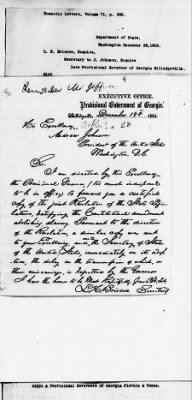 Domestic Letters, Volume 71, p.
Department of State,
Washington December 28, 1865.
L. H. Briscoe, Esquire,
Secretary to J. Johnson, Esquire
Late Provisional Governor of Georgia Milledgeville.
EXECUTIVE OFFICE,
Provisional Government of Georgia,
Milledgeville, December 15th 1865
His Excellency,
Andrew Johnson
President of the United States
Washington, D.C.
Sir
I am directed by his Excellency
the Provisional Governor,
in office, to forward you a certified
copy of the joint Resolution of the State
ratifying the Constitutional amendment
abolishing slavery. Pursuant to the direction
of the Resolution, a similar copy was sent
to your Excellency, and the Secretary of State
of the United States, immediately on its
the delay in the transmission of which, or
their miscarriage, is regretted by the Governor
I have the honor to be Most Respectfully Your Obt Svt
L. H. Briscoe Secretary
Provisional Governors of Georgia Florida & Texas.